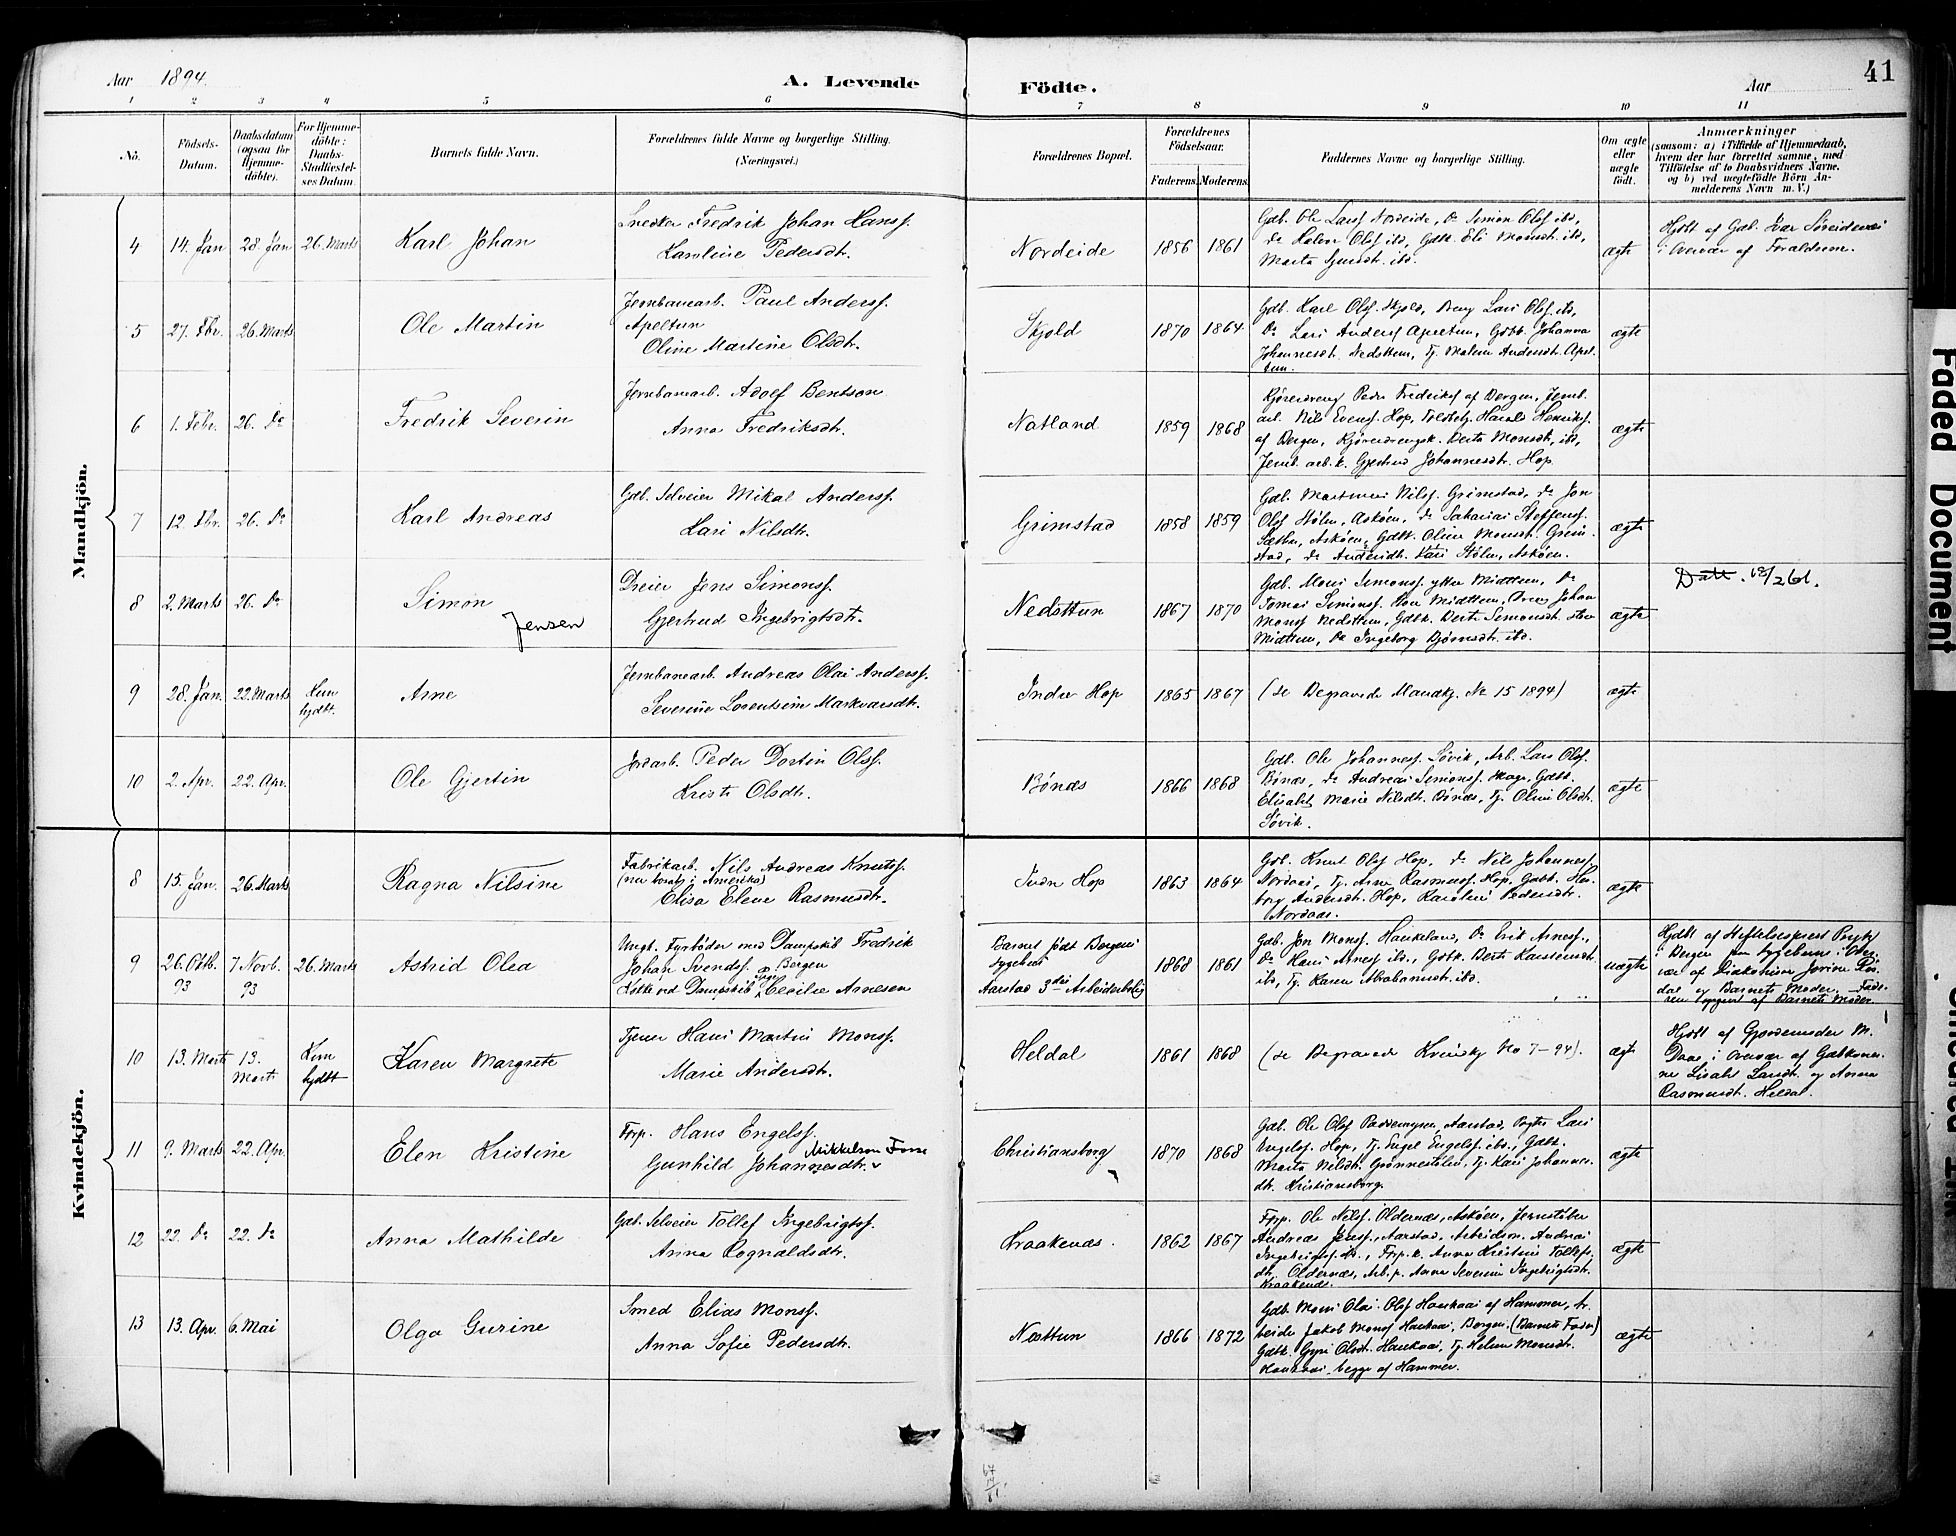 Aar 1894.
A. Levende
Födte.
Aar
41
1 2 3 4 5 6 7 8 9 10 11
No.
Födsels-
Datum.
Daabsdatum
(ogsaa for
Hjemme-
döbte).
For Hjemme-
döbte:
Daabs-
Stadfæstel-
ses Datum.
Barnets fulde Navn.
Forældrenes fulde Navne og borgerlige Stilling.
(Næringsvei.)
Forældrenes Bopæl.
Forældrenes
Födselsaar.
Faderens. Moderens.
Faddernes Navne og borgerlige Stilling.
Om ægte
eller
uægte
födt.
Anmærkninger
(saasom: a) i Tilfælde af Hjemmedaab,
hvem der har forrettet samme, med
Tilföielse af to Daabsvidners Navne,
og b) ved uægtefödte Börn An-
melderens Navn m. V.)
Mandkjön.
4 14. Jan 28. Jan 26. Marts Karl Johan
Snedker Fredrik Johan Hanss.
Karoline Pedersdtr.
Nordeide 1856 1861
Gdb. Ole Larss Nordeide, Do Simon Olss ibd,
Do Halvor Olss ibd, Gdbk. Eli Monsdt. ibd,
Marta Sjursdt. ibd.
ægte
Hjdbt af Gdb. Ivar
i Overvær af Forældrene.
5 27. Fbr. 26. Marts Ole Martin
Jernbanearb. Paul Anderss.
Apeltun
Oline Martine Olsdtr.
Skjold 1870 1864
Gdb. Karl Olss. Skjold, Dreng Lars Olss. ibd,
Do Lars Anderss Apeltun, Gdbk. Johanna
Johannesdt. Nedsttun, Pj. Malene Andersdt. Apel-
tun.
ægte
6 1. Febr. 26. Do Fredrik Severin
Jernbanearb. Adolf Bentson
Anna Fredriksdtr.
Natland 1859 1868
Kjøredreng Peder Frederikss af Bergen, Jernb.
arb. Nils Evenss Hop, Toldbetj. Harald Henrikss.
af Bergen, Kjøredrengsk. Berta Monsdt, ibd,
Jernb. arb. k. Gjertrud Johannesdt. Hop.
ægte
7 12. Fbr. 26. Do Karl Andreas
Gdb. Selveier Mikal Anderss.
Kari Nilsdtr.
Grimstad 1858 1859
Gdb. Martinus Nilss. Grimstad, Do Jon
Olss Stølen, Askøen, Do Sakarias Steffenss.
Sæthre, Askøen, Gdbk. Oline Monsdt. Grim-
stad, Do Andersdtr. Kari Stølen, Askøen.
ægte
8 2. Marts 26. Do Simon
Jensen
Dreier Jens Simonss.
Gjertrud Ingebrigtsdtr.
Nedsttun 1867 1870
Gdb. Mons Simonss. ytre Midttun, Do
Tomas Simonss. Store Midttun, Dreng Johan
Monss Nedsttun, Gdbk. Berta Simonsdt. store
Midttun, Do Ingeborg Bjørnsdt. ibd.
ægte
9 28. Jan. 22. Marts Hjem
hjdbt. Arne
Jernbanearb. Andreas Olai Anderss.
Severine Lorentsine Markvardsdtr.
Indre Hop 1865 1867
(se Begravede Mandkj. No 15 1894)
ægte
10 2. Apr. 22. Apr. Ole Gjertin
Jordarb. Peder Dortin Olss.
Kristi Olsdtr.
Bönæs 1866 1868
Gdb. Ole Johanness. Søvik, Arb. Lars Olss.
Bønæs, Do Andreas Simonss. Skage, Gdbk.
Elisabet Marie Nilsdt. Bönæs, Pj. Oline Olsdt.
Søvik.
ægte
Kvindekjön.
8 15. Jan. 26. Marts Ragna Nilsine
Fabrikarb. Nils Andreas Knutss.
(nu bosat i Amerika)
Elisa Elene Rasmusdtr.
Indre Hop 1863 1864
Gdb. Knut Olss Hop, Do Nils Johanness.
Nordaas, Pj. Arne Rasmuss. Hop, Gdbk. Her-
borg Andersdt. Hop, Karoline Pedersdt.
Nordaas.
ægte
9 26. Oktb. 93 7 Novb. 93 26. Marts Astrid Olea
Ungk. Fyrbøder med Dampskib Fredrik
Johan Svendss. Bergen
Kokke ved Dampskib Cecilie Arnesen
Barnet født Bergens
Sygehus
Aarstad 3die Arbeiderbolig 1868 1861
Gdb. Jon Monss. Haukeland, Do Erik Arness.,
Do Hans Arness ibd., Gdbk. Berta Karstensdt.
ibd, Pj. Karen Abrahamsdt. ibd.
uægte
Hjdbt af Stiftelsesprest
i Bergen
vær af Diakonisse Jorine
dal og Barnets Moder. Fade-
ren opgivet af Barnets Moder.
10 13. Marts 13. Marts Hjem
hjdbt Karen Margrete
Tjener Hans Martin Monss.
Marie Andersdtr.
Heldal 1861 1868
(se Begravede Kvindekj No 7 - 94).
ægte
Hjdbt af Gjordemoder M.
Daae i Overvær af Gdbkoner-
ne Lisabet Larsdt. og Anna
Rasmusdt. Heldal.
11 9. Marts 22. Apr. Elen Kristine
Fprp. Hans Engelss.
Mikkelson Fosse
Gunhild Johannesdtr.
Christiansborg 1870 1868
Gdb. Ole Olss Paddemyren, Aarstad, Lars
Engelss. Hop, Pj. Engel Engelss. ibd., Gdbk.
Marta Nilsdt. Grønnestølen, Pj. Kari Johannes-
dtr. Kristiansborg.
ægte
12 22. Do 22. Do Anna Mathilde
Gdb. Selveier Tollef Ingebrigtss.
Anna Rognaldsdtr.
Kraakenæs. 1862 1867
Fprp. Ole Nilss. Oldernæs, Askøen, Jernstøber
Andreas Jenss., Aarstad, Arbeidsm. Andreas
Ingebrigtss. ibd., Fprp.k. Anna Kristine Tollefs-
dtr. Oldernæs, Arb. p. Anna Severine Ingebrigtsdt.
Kraakenæs.
ægte
13 13. Apr. 6. Mai Olga Gurine
Smed Elias Monss.
Anna Sofie Pedersdtr.
Næsttun 1866 1872
Gdb. Mons Olai Olss Haukaas af Hammer, Ar-
beider Jakob Monss Haukaas, Bergen, (Barnets Fader)
Gdbk. Guri Olsdt. Haukaas, Pj. Helene Monsdt.
Haukaas, begge af Hammer.
ægte
Faded Document